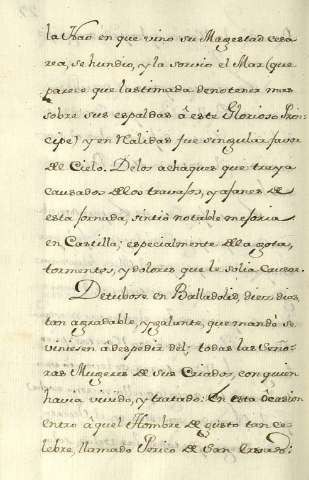 la Nao en que vino su Magestad cesa
rea, se hundio, y la sorvio el Mar (que
parece que lastimada de no tener mas
sobre sus espaldas â este Glorioso Prin-
cipe) y en Realidad fue singular favor
del Cielo. De los achaques que traya
causados de los travajos, y afanes de
esta jornada, sintió notable mejoria
en Castilla; especialmente de la gota,
tormentos, y dolores que le solia causar.
Detubose en Balladolid, diez dias
tan agradable, y galante, que mandó se
viniesen â despedir del; todas las Seño-
ras Mugeres de sus Criados, con quien
havia vivido, y tratado: En esta ocasion
entro âquel Hombre de gusto tan ce-
lebre, llamado Perico de San